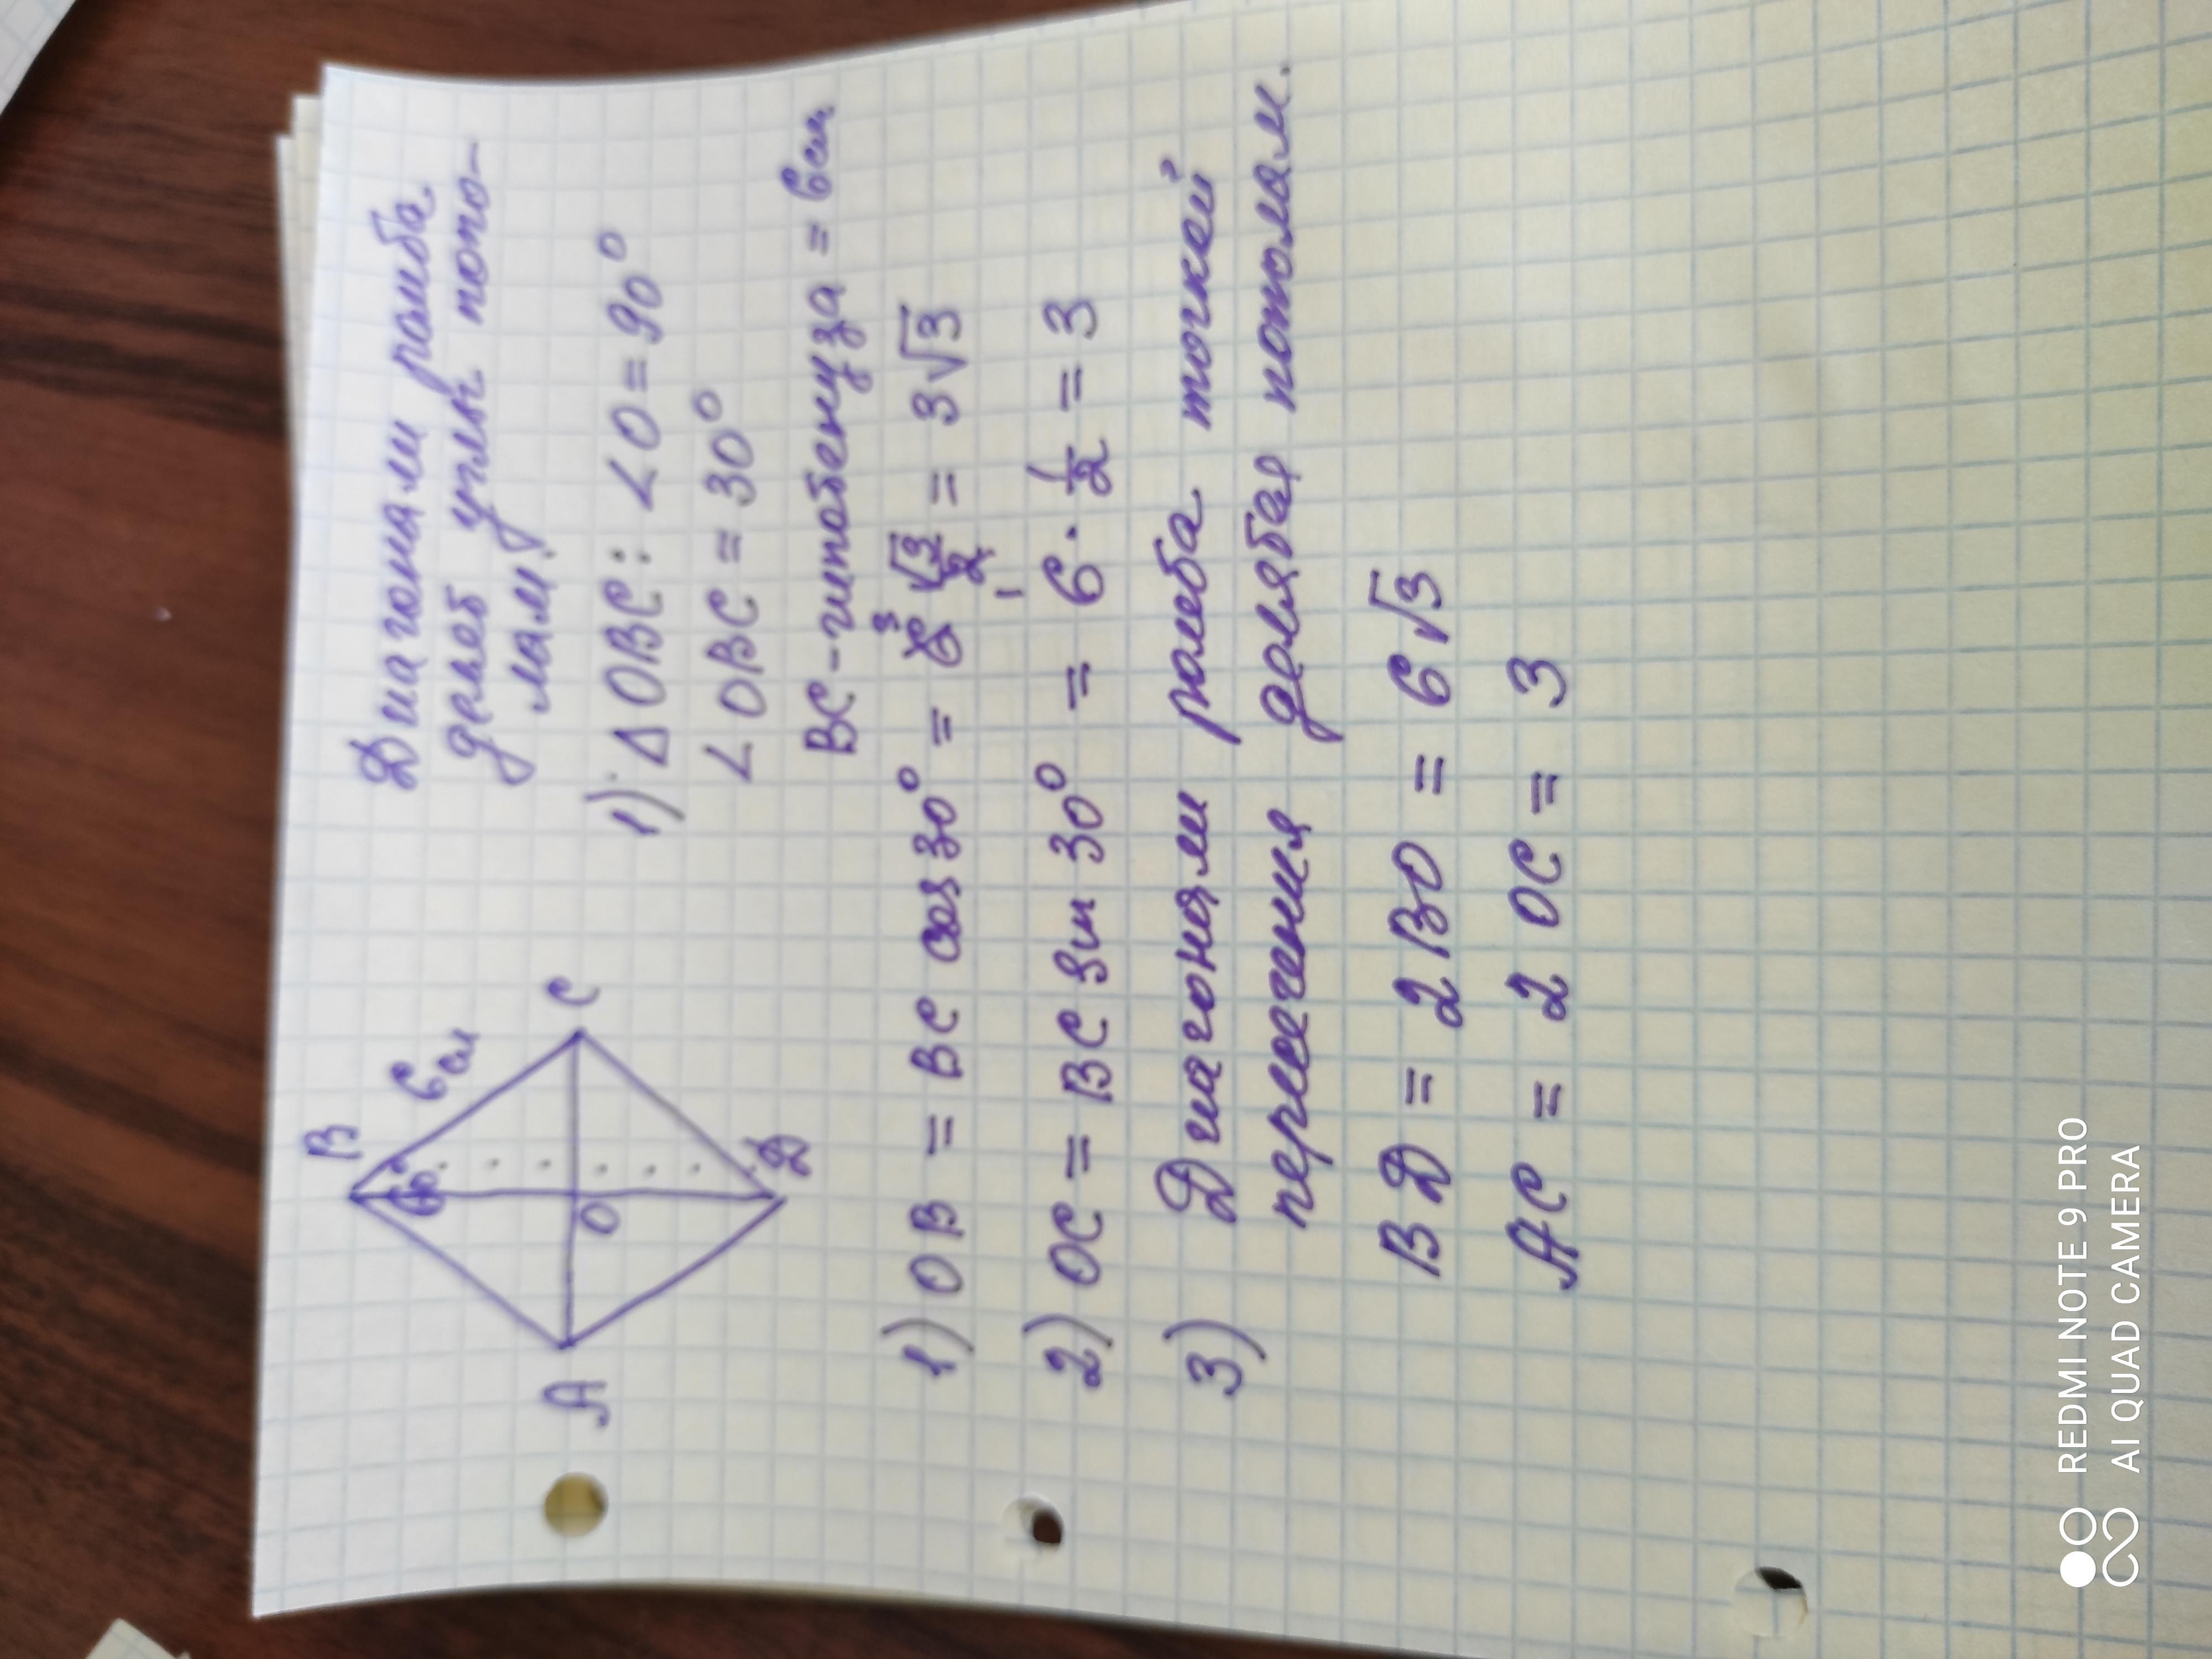 Диагонали ромба
делят углы попо-
лам!
B
6 см
60°
A
O
C
Д
1) Δ OBC: ∠O = 90°
∠OBC = 30°
BC - гипотенуза = 6 см
1) OB = BC cos 30° = 6 √3/2 = 3√3
3
1
2) OC = BC Sin 30° = 6 · 1/2 = 3
3) Диагонали ромба точкой
пересечения делятся пополам.
B Д = 2 BO = 6√3
AC = 2 OC = 3
REDMI NOTE 9 PRO
AI QUAD CAMERA